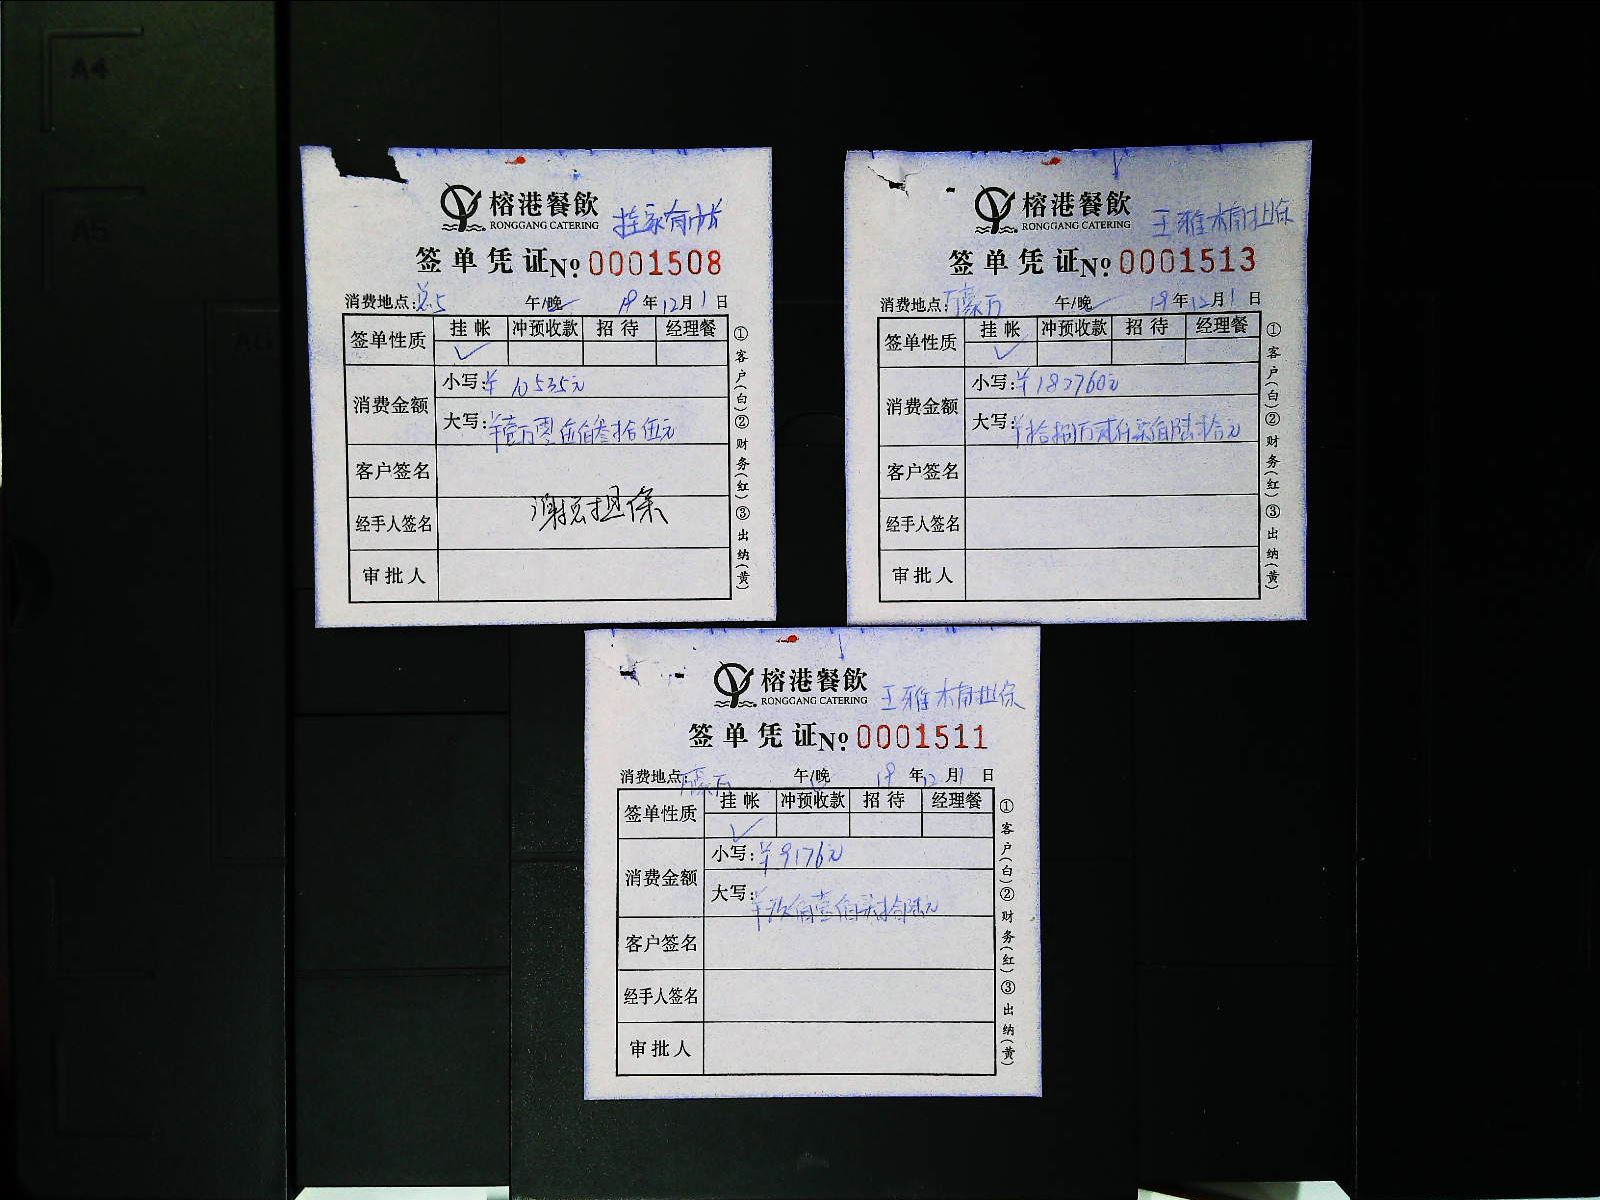 A4
A5
榕港餐飲
RONGGANG CATERING
签单凭证 No 0001508
消费地点:总5 午/晚 19年12月1日
签单性质 挂帐 冲预收款 招待 经理餐
✓
消费金额 小写:¥10535元
大写:¥壹万零伍佰叁拾伍元
客户签名
经手人签名 担保
审批人
①客户(白)②财务(红)③出纳(黄)
榕港餐飲 王雅楠担保
RONGGANG CATERING
签单凭证 No 0001513
消费地点: 午/晚 19年12月1日
签单性质 挂帐 冲预收款 招待 经理餐
✓
消费金额 小写:¥182760元
大写:¥拾捌万贰仟柒佰陆拾元
客户签名
经手人签名
审批人
①客户(白)②财务(红)③出纳(黄)
榕港餐飲 王雅楠担保
RONGGANG CATERING
签单凭证 No 0001511
消费地点: 午/晚 19年12月1日
签单性质 挂帐 冲预收款 招待 经理餐
✓
消费金额 小写:¥9176元
大写:¥玖佰壹佰柒拾陆元
客户签名
经手人签名
审批人
①客户(白)②财务(红)③出纳(黄)